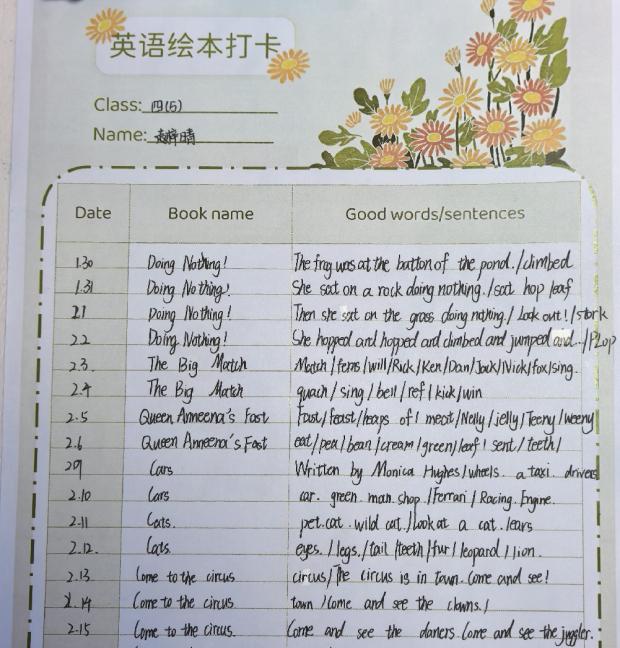 英语绘本打卡
Class: 四(5)
Name: 晴
Date Book name Good words/sentences
1.30 Doing Nothing! The frog was at the bottom of the pond. / climbed
1.31 Doing Nothing! She sat on a rock doing nothing. / sat hop leaf
2.1 Doing Nothing! Then she sat on the grass doing nothing. / Look out! / stork
2.2 Doing Nothing! She hopped and hopped and climbed and jumped and... / Plop
2.3. The Big Match Match / fems / will / Rick / Ken / Dan / Jack / Nick / fox / sing.
2.4 The Big Match quach / sing / bell / ref / kick / win
2.5 Queen Anneena's Fast Fast / feast / heaps of / meat / Nelly / jelly / Teeny / weeny
2.6 Queen Anneena's Fast eat / pea / bean / cream / green / leaf / sent / teeth /
2.9 Cars Written by Monica Hughes / wheels. a taxi drivers
2.10 Cars car. green. man. shop / Ferrari / Racing. Engine.
2.11 Cats. pet. cat. wild cat. / Look at a cat. / ears
2.12. Cats. eyes. / legs. / tail / teeth / fur / leopard / lion.
2.13 Come to the circus circus / The circus is in town. Come and see!
2.14 Come to the circus town / Come and see the clowns. /
2.15 Come to the circus. Come and see the daners. Come and see the juggler.